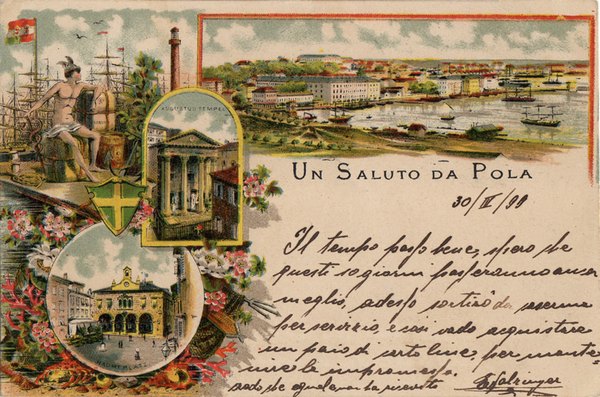 AUGUSTUS TEMPEL
UN SALUTO DA POLA
Il tempo passo bene, spero che
questi 10 giorni passeranno ancora
meglio, adesso sortirò da caserma
per servizio, e così vado acquistare
un paio di cartoline, per mante-
nere le impromesse.
vado che